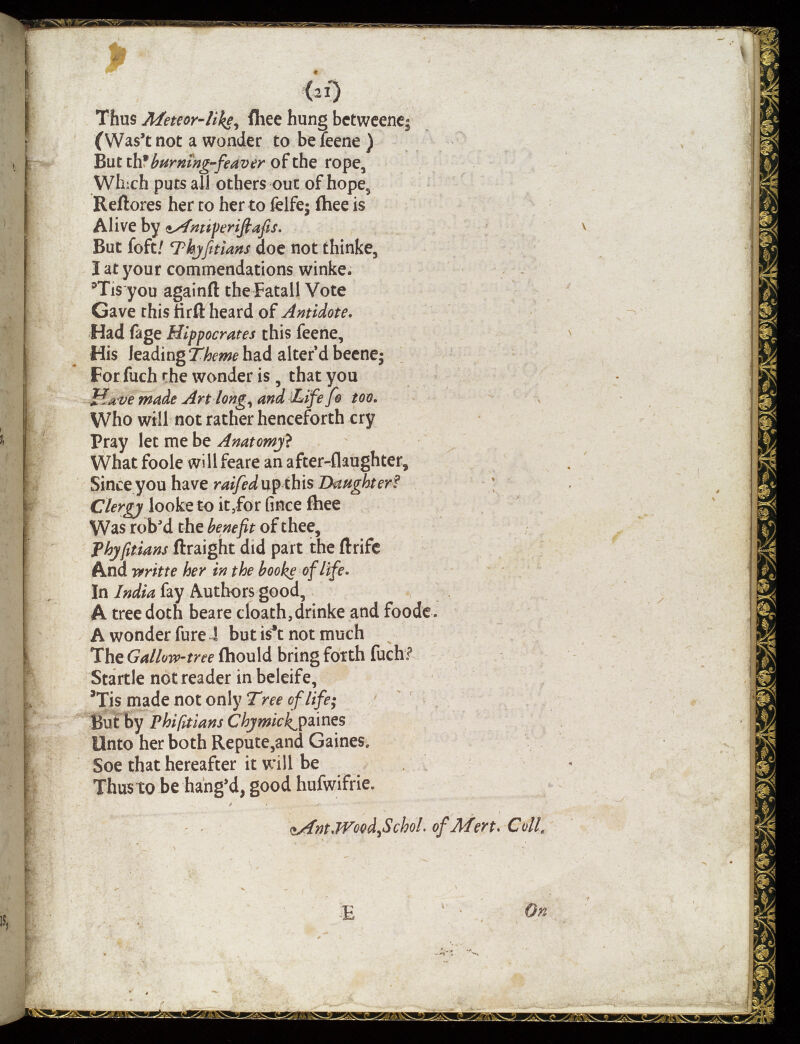 (21)
Thus Meteor-like, ſhee hung betweene;
(Was't not a wonder to be ſeene )
But th' burning-feaver of the rope,
Which puts all others out of hope,
Reſtores her to her to ſelfe; ſhee is
Alive by Antiperiſtaſis.
But ſoft! Phyſitians doe not thinke,
I at your commendations winke.
'Tis you againſt the Fatall Vote
Gave this firſt heard of Antidote.
Had ſage Hippocrates this ſeene,
His leading Theme had alter'd beene;
For ſuch the wonder is , that you
Have made Art long, and Life ſo too.
Who will not rather henceforth cry
Pray let me be Anatomy?
What foole will feare an after-ſlaughter,
Since you have raiſed up this Daughter?
Clergy looke to it,for ſince ſhee
Was rob'd the benefit of thee,
Phyſitians ſtraight did part the ſtrife
And writte her in the booke of life.
In India ſay Authors good,
A tree doth beare cloath,drinke and foode.
A wonder ſure ! but is't not much
The Gallow-tree ſhould bring forth ſuch?
Startle not reader in beleife,
'Tis made not only Tree of life;
But by Phiſitians Chymick paines
Unto her both Repute,and Gaines.
Soe that hereafter it will be
Thus to be hang'd, good huſwifrie.
Ant.Wood,Schol. of Mert. Coll.
E On